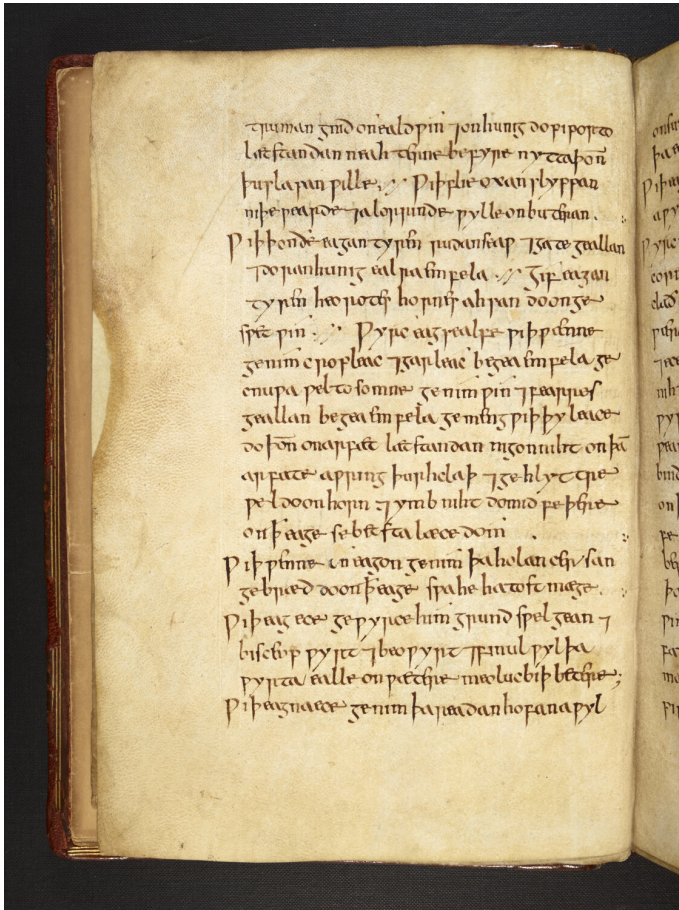 truman gnid on ealdƿin ⁊ on hunig do pipor to
læt standan neahterne be fyre nytta þoñ
þu slapan ƿille. Ƿiþ flie oxan slyppan
niþeƿearde ⁊ alorrinde ƿylle on buteran.
Ƿiþ þon ðe eagan tyren rudan seaƿ ⁊ gate geallan
⁊ doran hunig ealra em fela. Gif eagan
tyren heorotes hornes ahsan do on ge
sƿet ƿin. Ƿyrc eagsealfe ƿiþ ƿænne
genim cropleac ⁊ garleac begea em fela ge
cnuƿa ƿel to somne genim ƿin ⁊ fearres
geallan begea em fela gemeng ƿiþ þy leace
do þoñ on arfæt læt standan nigon niht on þā
arfate aƿring þurh claþ ⁊ gehlyttre
ƿel do on horn ⁊ ymb niht do mid feþre
on ꝥ eage se betsta læcedom
Ƿiþ ƿenne on eagon genim þa holan cersan
gebræd do on ꝥ eage sƿa he hatost mæge.
Ƿiþ eagece geƿyrce him grundsƿelgean ⁊
bisceop ƿyrt ⁊ beoƿyrt ⁊ finul ƿyl þa
ƿyrta ealle on ƿætere meoluc biþ betere;
Ƿiþ eagna ece genim þa readan hofan aƿyl